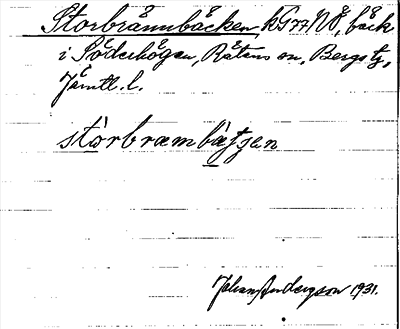 Storbrännbäcken, kG77NO, bäck
i Söderhögen, Rätans sn, Bergs tg,
Jämtl. l.
stòrbræmbæ̀tʃen
Johan Anderson 1931.